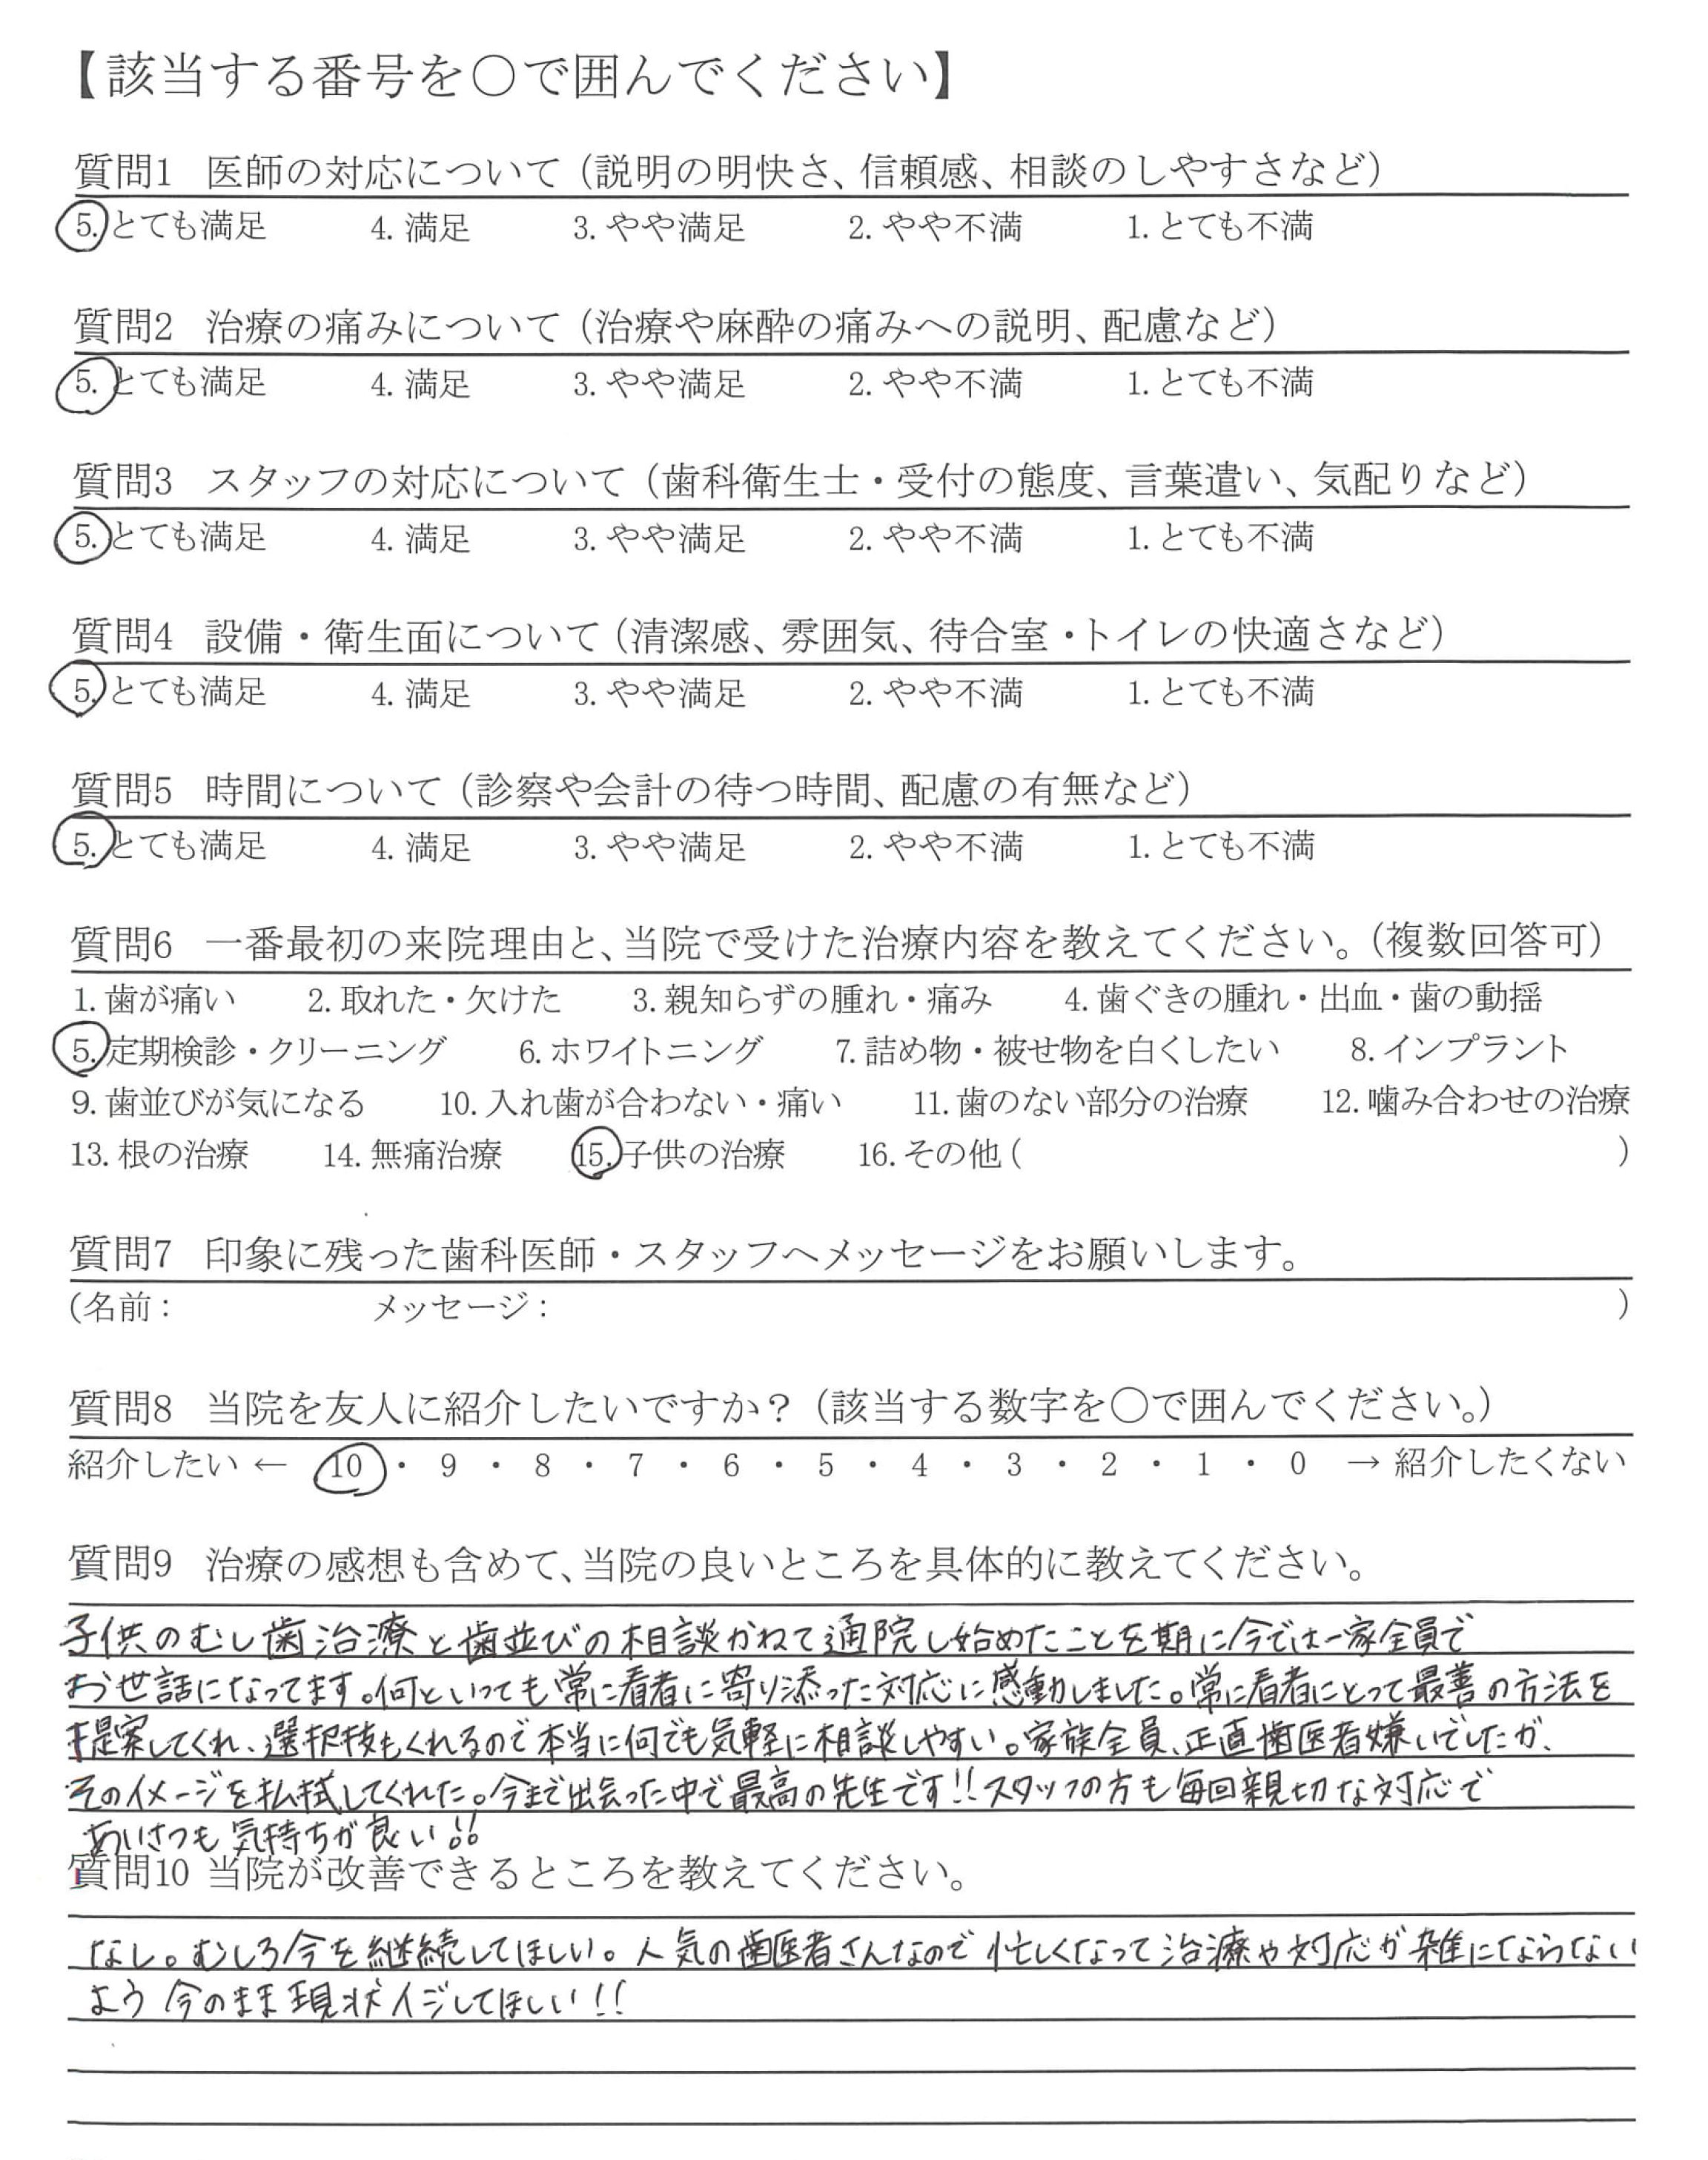 【該当する番号を〇で囲んでください】
質問1 医師の対応について（説明の明快さ、信頼感、相談のしやすさなど）
5. とても満足 4. 満足 3. やや満足 2. やや不満 1. とても不満
質問2 治療の痛みについて（治療や麻酔の痛みへの説明、配慮など）
5. とても満足 4. 満足 3. やや満足 2. やや不満 1. とても不満
質問3 スタッフの対応について（歯科衛生士・受付の態度、言葉遣い、気配りなど）
5. とても満足 4. 満足 3. やや満足 2. やや不満 1. とても不満
質問4 設備・衛生面について（清潔感、雰囲気、待合室・トイレの快適さなど）
5. とても満足 4. 満足 3. やや満足 2. やや不満 1. とても不満
質問5 時間について（診察や会計の待つ時間、配慮の有無など）
5. とても満足 4. 満足 3. やや満足 2. やや不満 1. とても不満
質問6 一番最初の来院理由と、当院で受けた治療内容を教えてください。（複数回答可）
1. 歯が痛い 2. 取れた・欠けた 3. 親知らずの腫れ・痛み 4. 歯ぐきの腫れ・出血・歯の動揺
5. 定期検診・クリーニング 6. ホワイトニング 7. 詰め物・被せ物を白くしたい 8. インプラント
9. 歯並びが気になる 10. 入れ歯が合わない・痛い 11. 歯のない部分の治療 12. 噛み合わせの治療
13. 根の治療 14. 無痛治療 15. 子供の治療 16. その他（ ）
質問7 印象に残った歯科医師・スタッフへメッセージをお願いします。
（名前： メッセージ： ）
質問8 当院を友人に紹介したいですか？（該当する数字を〇で囲んでください。）
紹介したい ← 10 ・ 9 ・ 8 ・ 7 ・ 6 ・ 5 ・ 4 ・ 3 ・ 2 ・ 1 ・ 0 → 紹介したくない
質問9 治療の感想も含めて、当院の良いところを具体的に教えてください。
子供のむし歯治療と歯並びの相談かねて通院し始めたことを期に今では一家全員で
お世話になってます。何といっても常に看者に寄り添った対応に感動しました。常に看者にとって最善の方法を
提案してくれ、選択枝もくれるので本当に何でも気軽に相談しやすい。家族全員、正直歯医者嫌いでしたが、
そのイメージを払拭してくれた。今まで出会った中で最高の先生です!!スタッフの方も毎回親切な対応で
あいさつも気持ちが良い!!
質問10 当院が改善できるところを教えてください。
なし。むしろ今を継続してほしい。人気の歯医者さんなので忙しくなって治療や対応が雑にならない
よう今のまま現状イジしてほしい!!